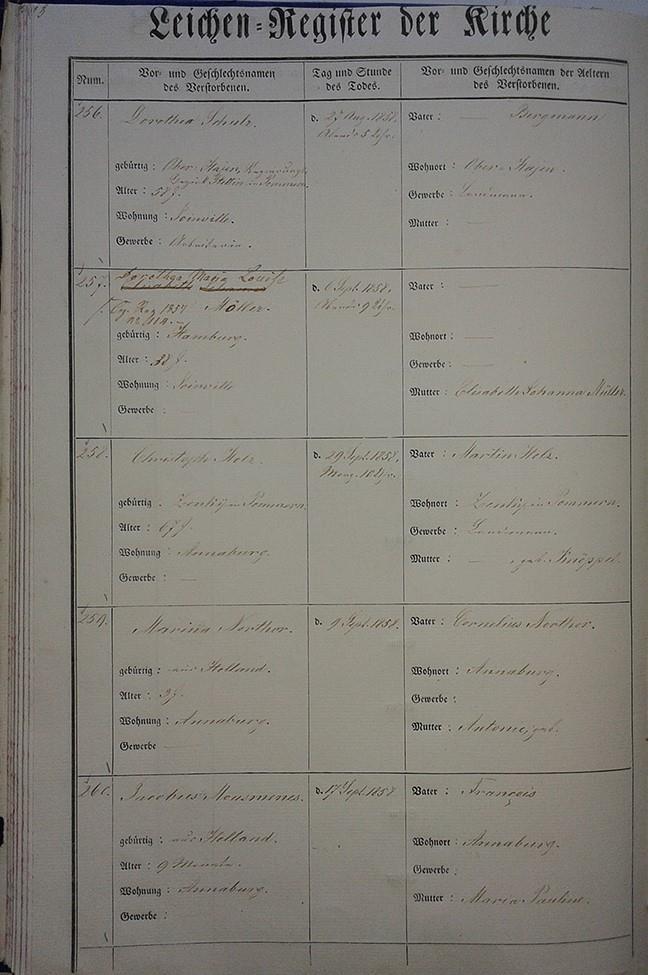 Leichen-Register der Kirche
Num.
Vor- und Geschlechtsnamen
des Verstorbenen.
Tag und Stunde
des Todes.
Vor- und Geschlechtsnamen der Aeltern
des Verstorbenen.
256.
Dorothea Schulz.
gebürtig : Ober-Hagen, Regierungs-
Bezirk Stettin in Pommern.
Alter : 58 J.
Wohnung : Joinville.
Gewerbe : Arbeiterin.
d. 27 Aug. 1858.
Abends 5 Uhr.
Vater : — Bergmann
Wohnort : Ober-Hagen.
Gewerbe : Landmann.
Mutter : —
257.
Dorothea Maria Louise
Elisabeth Johanna
1854 Möller.
gebürtig : Hamburg.
Alter : 38 J.
Wohnung : Joinville
Gewerbe : —
d. 6 Sept. 1858.
Abends 9 Uhr.
Vater : —
Wohnort : —
Gewerbe : —
Mutter : Elisabeth Johanna Müller.
258.
Christoph Holz.
gebürtig . in Pommern.
Alter : 67 J.
Wohnung : Annaburg.
Gewerbe : —
d. 29 Sept. 1858.
Morg. 10 Uhr.
Vater : Martin Holz.
Wohnort : in Pommern.
Gewerbe : Landmann.
Mutter : — , geb. Knöppel.
259.
Marina Northor.
gebürtig : aus Holland.
Alter : 3 J.
Wohnung : Annaburg.
Gewerbe —
d. 9 Sept. 1858.
Vater : Cornelius Northor.
Wohnort : Annaburg.
Gewerbe :
Mutter : geb.
260.
Jacobus Mousmenes.
gebürtig : aus Holland.
Alter : 9 Monate.
Wohnung : Annaburg.
Gewerbe :
d. 17 Sept. 1858
Vater : François
Wohnort : Annaburg.
Gewerbe :
Mutter : Maria Pauline.